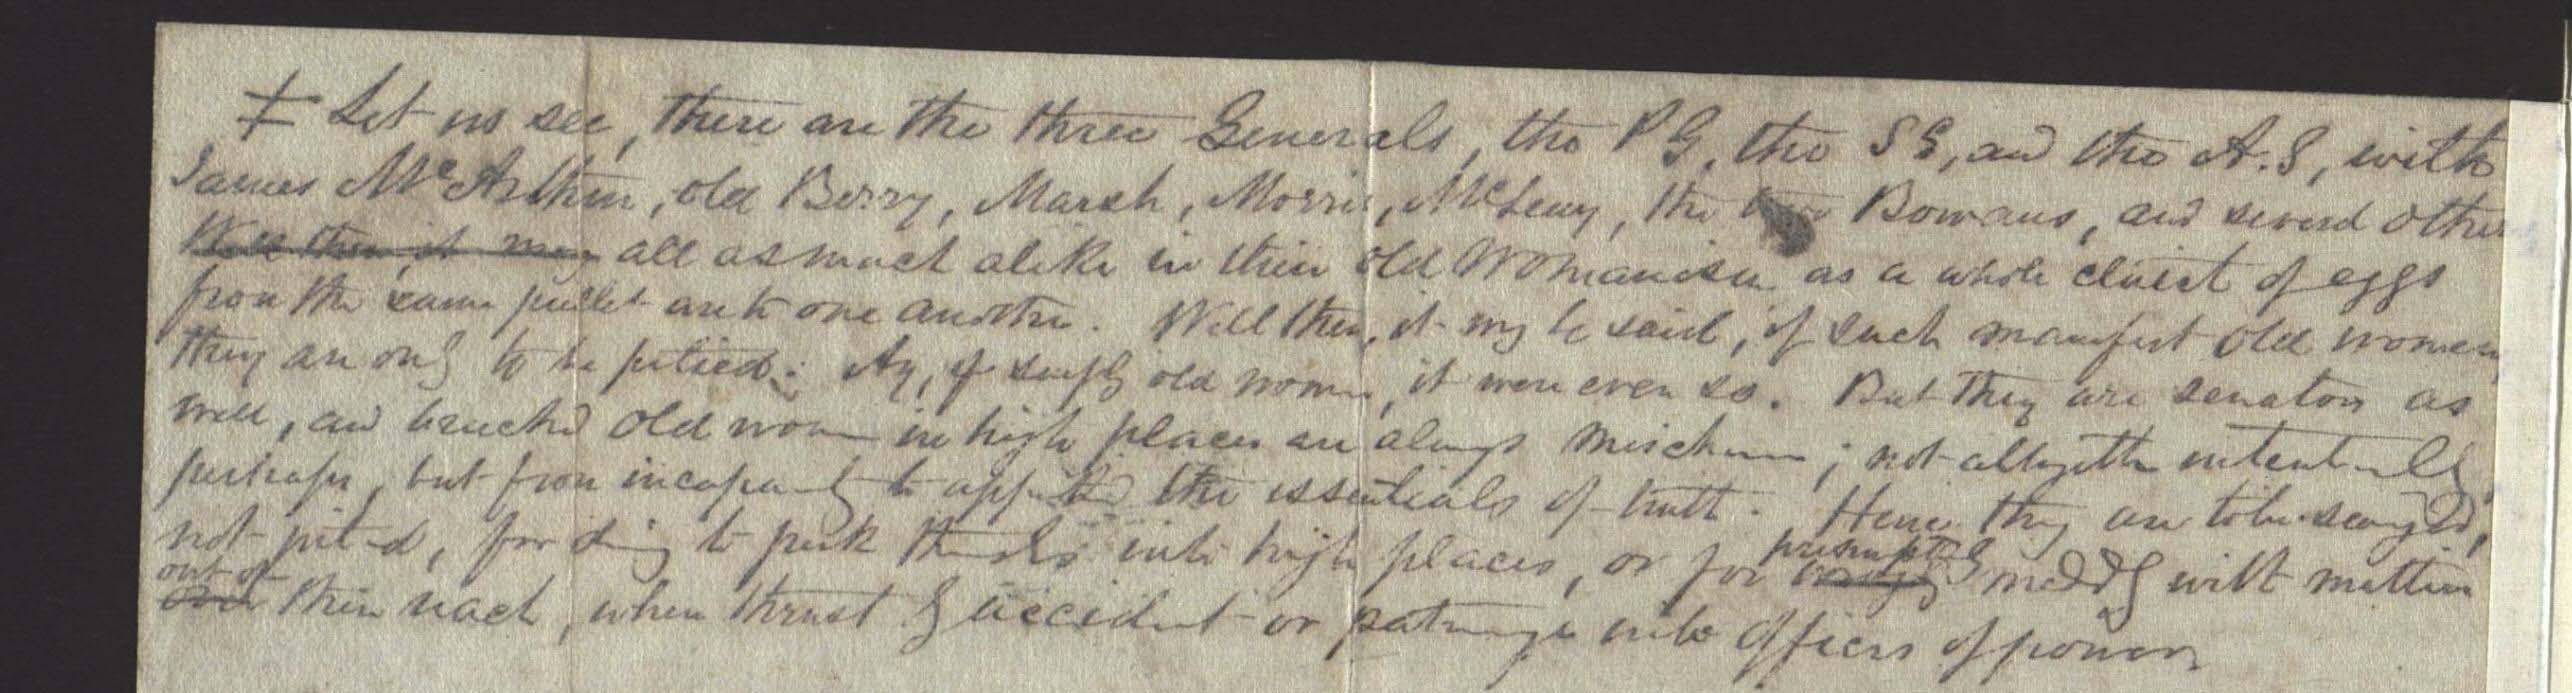 ‡ Let us see, there are the three Generals, the P G, the S G, and the A.S, with
James McArthur, old Berry, Marsh, Morris, McLeay, the two Bowmans, and several other
Well then, it may all as much alike in their old womanism as a whole of eggs
from the same pullet are to one another. Well then, it my be said, if such manifest old women,
they are only to be pitied. Ay, if simply old women, it were even so. But they are senators as
well, and old women in high places are always ; not altogether intentionally
perhaps, but from incapacity to the essentials of truth. Hence they are to be scourged,
not pitied, for to into high places, or for presumptly meddlg with matters
out of their reach, when thrust by accident or patronage into offices of power